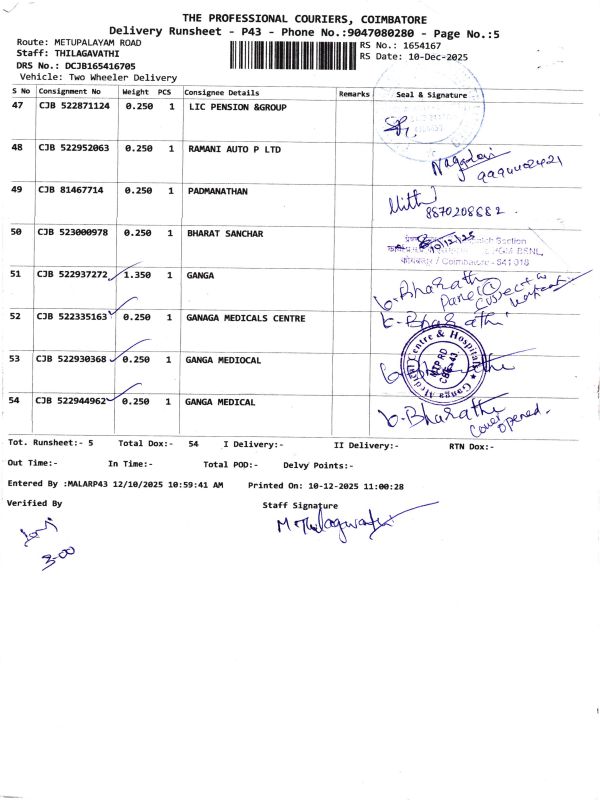 THE PROFESSIONAL COURIERS, COIMBATORE
Delivery Runsheet - P43 - Phone No.:9047080280 - Page No.:5
Route: METUPALAYAM ROAD
Staff: THILAGAVATHI
DRS No.: DCJB165416705
Vehicle: Two Wheeler Delivery
RS No.: 1654167
RS Date: 10-Dec-2025
S No Consignment No Weight PCS Consignee Details Remarks Seal & Signature
47 CJB 522871124 0.250 1 LIC PENSION &GROUP
48 CJB 522952063 0.250 1 RAMANI AUTO P LTD
49 CJB 81467714 0.250 1 PADMANATHAN
8870208682.
50 CJB 523000978 0.250 1 BHARAT SANCHAR
10/12/25
Section
PGM BSNL
कोयंबत्तूर / Coimbatore - 641 018
51 CJB 522937272 1.350 1 GANGA
b-Bharathi
52 CJB 522335163 0.250 1 GANAGA MEDICALS CENTRE
b-Bharathi
53 CJB 522930368 0.250 1 GANGA MEDIOCAL
b-Bharathi
Ganga Medical Centre & Hospitals
MTP RD
CBE-43
54 CJB 522944962 0.250 1 GANGA MEDICAL
b-Bharathi
Cover opened.
Tot. Runsheet:- 5 Total Dox:- 54 I Delivery:- II Delivery:- RTN Dox:-
Out Time:- In Time:- Total POD:- Delvy Points:-
Entered By :MALARP43 12/10/2025 10:59:41 AM Printed On: 10-12-2025 11:00:28
Verified By Staff Signature
M Thilagavathi
3.00